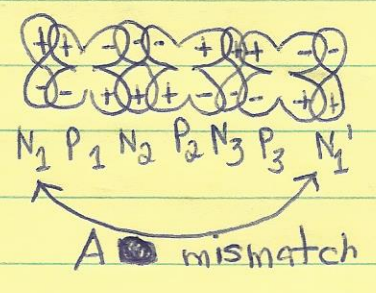 + + - - - + + + - -
- - + + + - - - + +
N₁ P₁ N₂ P₂ N₃ P₃ N₁'
A mismatch